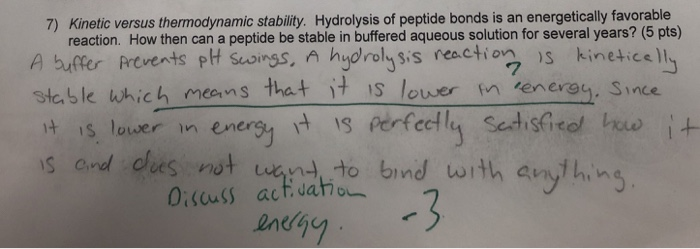 7) Kinetic versus thermodynamic stability. Hydrolysis of peptide bonds is an energetically favorable
reaction. How then can a peptide be stable in buffered aqueous solution for several years? (5 pts)
A buffer prevents pH swings, A hydrolysis reaction is kinetically
?
stable which means that it is lower in energy. Since
it is lower in energy it is perfectly satisfied how it
is and does not want to bind with anything.
Discuss activation
energy. -3